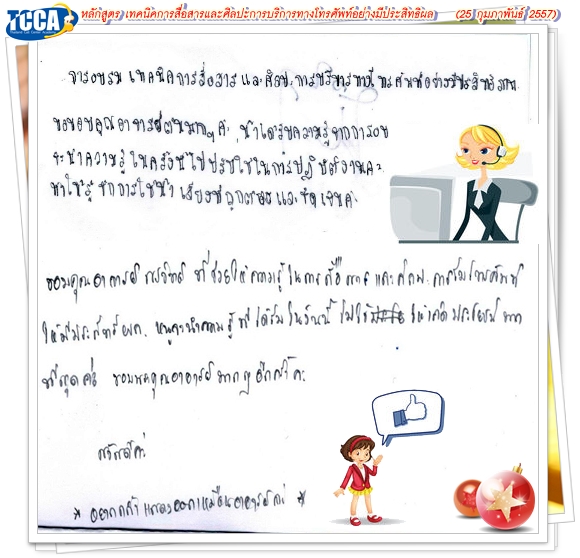 TCCA
Thailand Call Center Academy
หลักสูตร เทคนิคการสื่อสารและศิลปะการบริการทางโทรศัพท์อย่างมีประสิทธิผล (25 กุมภาพันธ์ 2557)
การอบรม เทคนิคการสื่อสาร และ ศิลปะ การบริการทางโทรศัพท์อย่างมีประสิทธิผล
ขอขอบคุณอาจารย์ มากๆ ค่ะ ได้รับความรู้จากการอบ
จะนำความรู้ในครั้งนี้ไปปรับใช้ในการปฏิบัติงานค่ะ
ทำให้รู้จักการใช้น้ำเสียงที่ถูกต้อง และชัดเจนค่ะ
ขอบคุณอาจารย์ ที่ช่วยให้ความรู้ในการสื่อสาร และศิลปะ
ให้มีประสิทธิผล หนูจะนำความรู้ที่ได้รับในวันนี้ ไปใช้ ให้เกิดประโยชน์ มาก
ที่สุดค่ะ ขอบพระคุณอาจารย์มากๆ อีกครั้งค่ะ
สวัสดีค่ะ
* อยากกล้าแสดงออกเหมือนอาจารย์ค่ะ *